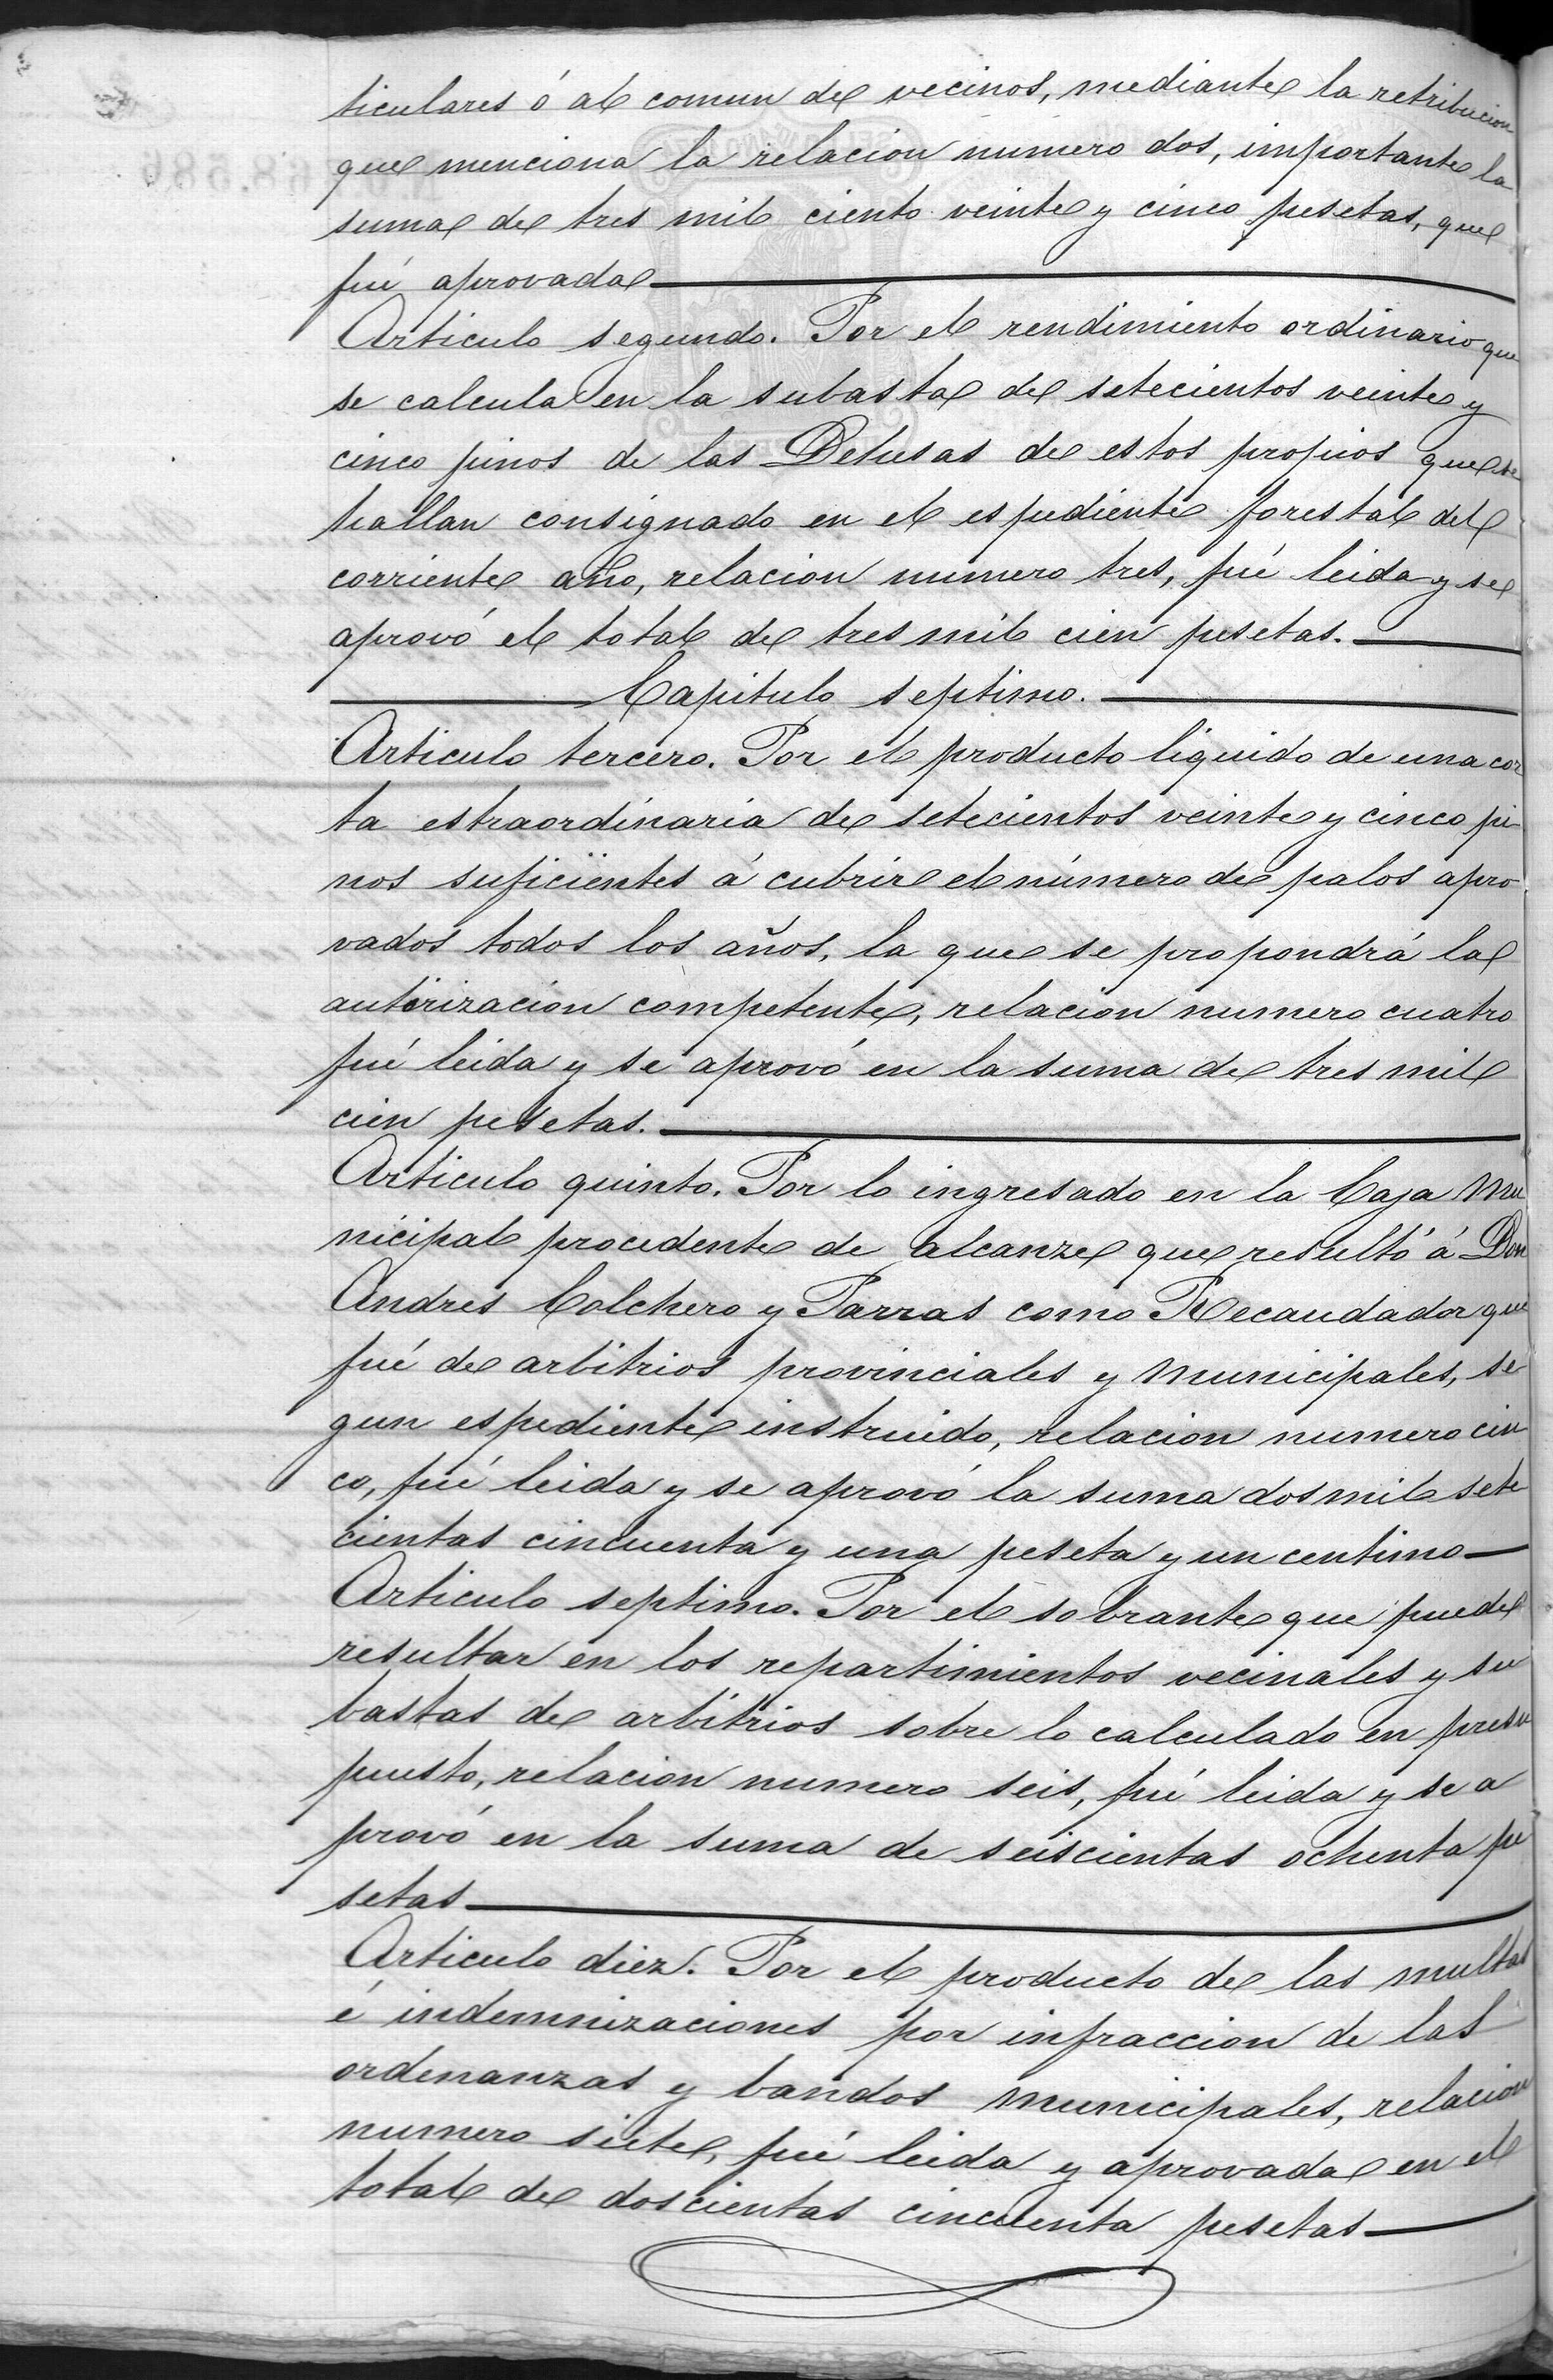 ticulares ó al comun de vecinos, mediante la retribucion
que menciona la relacion numero dos, importante la
suma de tres mil ciento veinte y cinco pesetas, que
fué aprovada
Articulo segundo. Por el rendimiento ordinario que
se calcula en la subasta de setecientos veinte y
cinco pinos de las Dehesas de estos propios que se
hallan consignado en el espediente forestal del
corriente año, relacion numero tres, fué leida y se
aprovó el total de tres mil cien pesetas.
Capitulo septimo.
Articulo tercero. Por el producto liquido de una cor
ta estraordinaria de setecientos veinte y cinco pi
nos suficientes á cubrir el número de palos apro
vados todos los años, la que se propondrá la
autorizacion competente, relacion numero cuatro
fué leida y se aprovó en la suma de tres mil
cien pesetas.
Articulo quinto. Por lo ingresado en la Caja Mu
nicipal procedente de alcanze que resultó á Don
Andres Colchero y Parras como Recaudador que
fué de arbitrios provinciales y Municipales, se
gun espediente instruido, relacion numero cin
co, fué leida y se aprovó la suma dos mil sete
cientas cincuenta y una peseta y un centimo
Articulo septimo. Por el sobrante que puede
resultar en los repartimientos vecinales y su
bastas de arbitrios sobre lo calculado en presu
puesto, relacion numero seis, fué leida y se a
provó en la suma de seiscientas ochenta pe
setas
Articulo diez. Por el producto de las multas
é indemnizaciones por infraccion de las
ordenanzas y bandos Municipales, relacion
numero siete, fué leida y aprovada en el
total de doscientas cincuenta pesetas